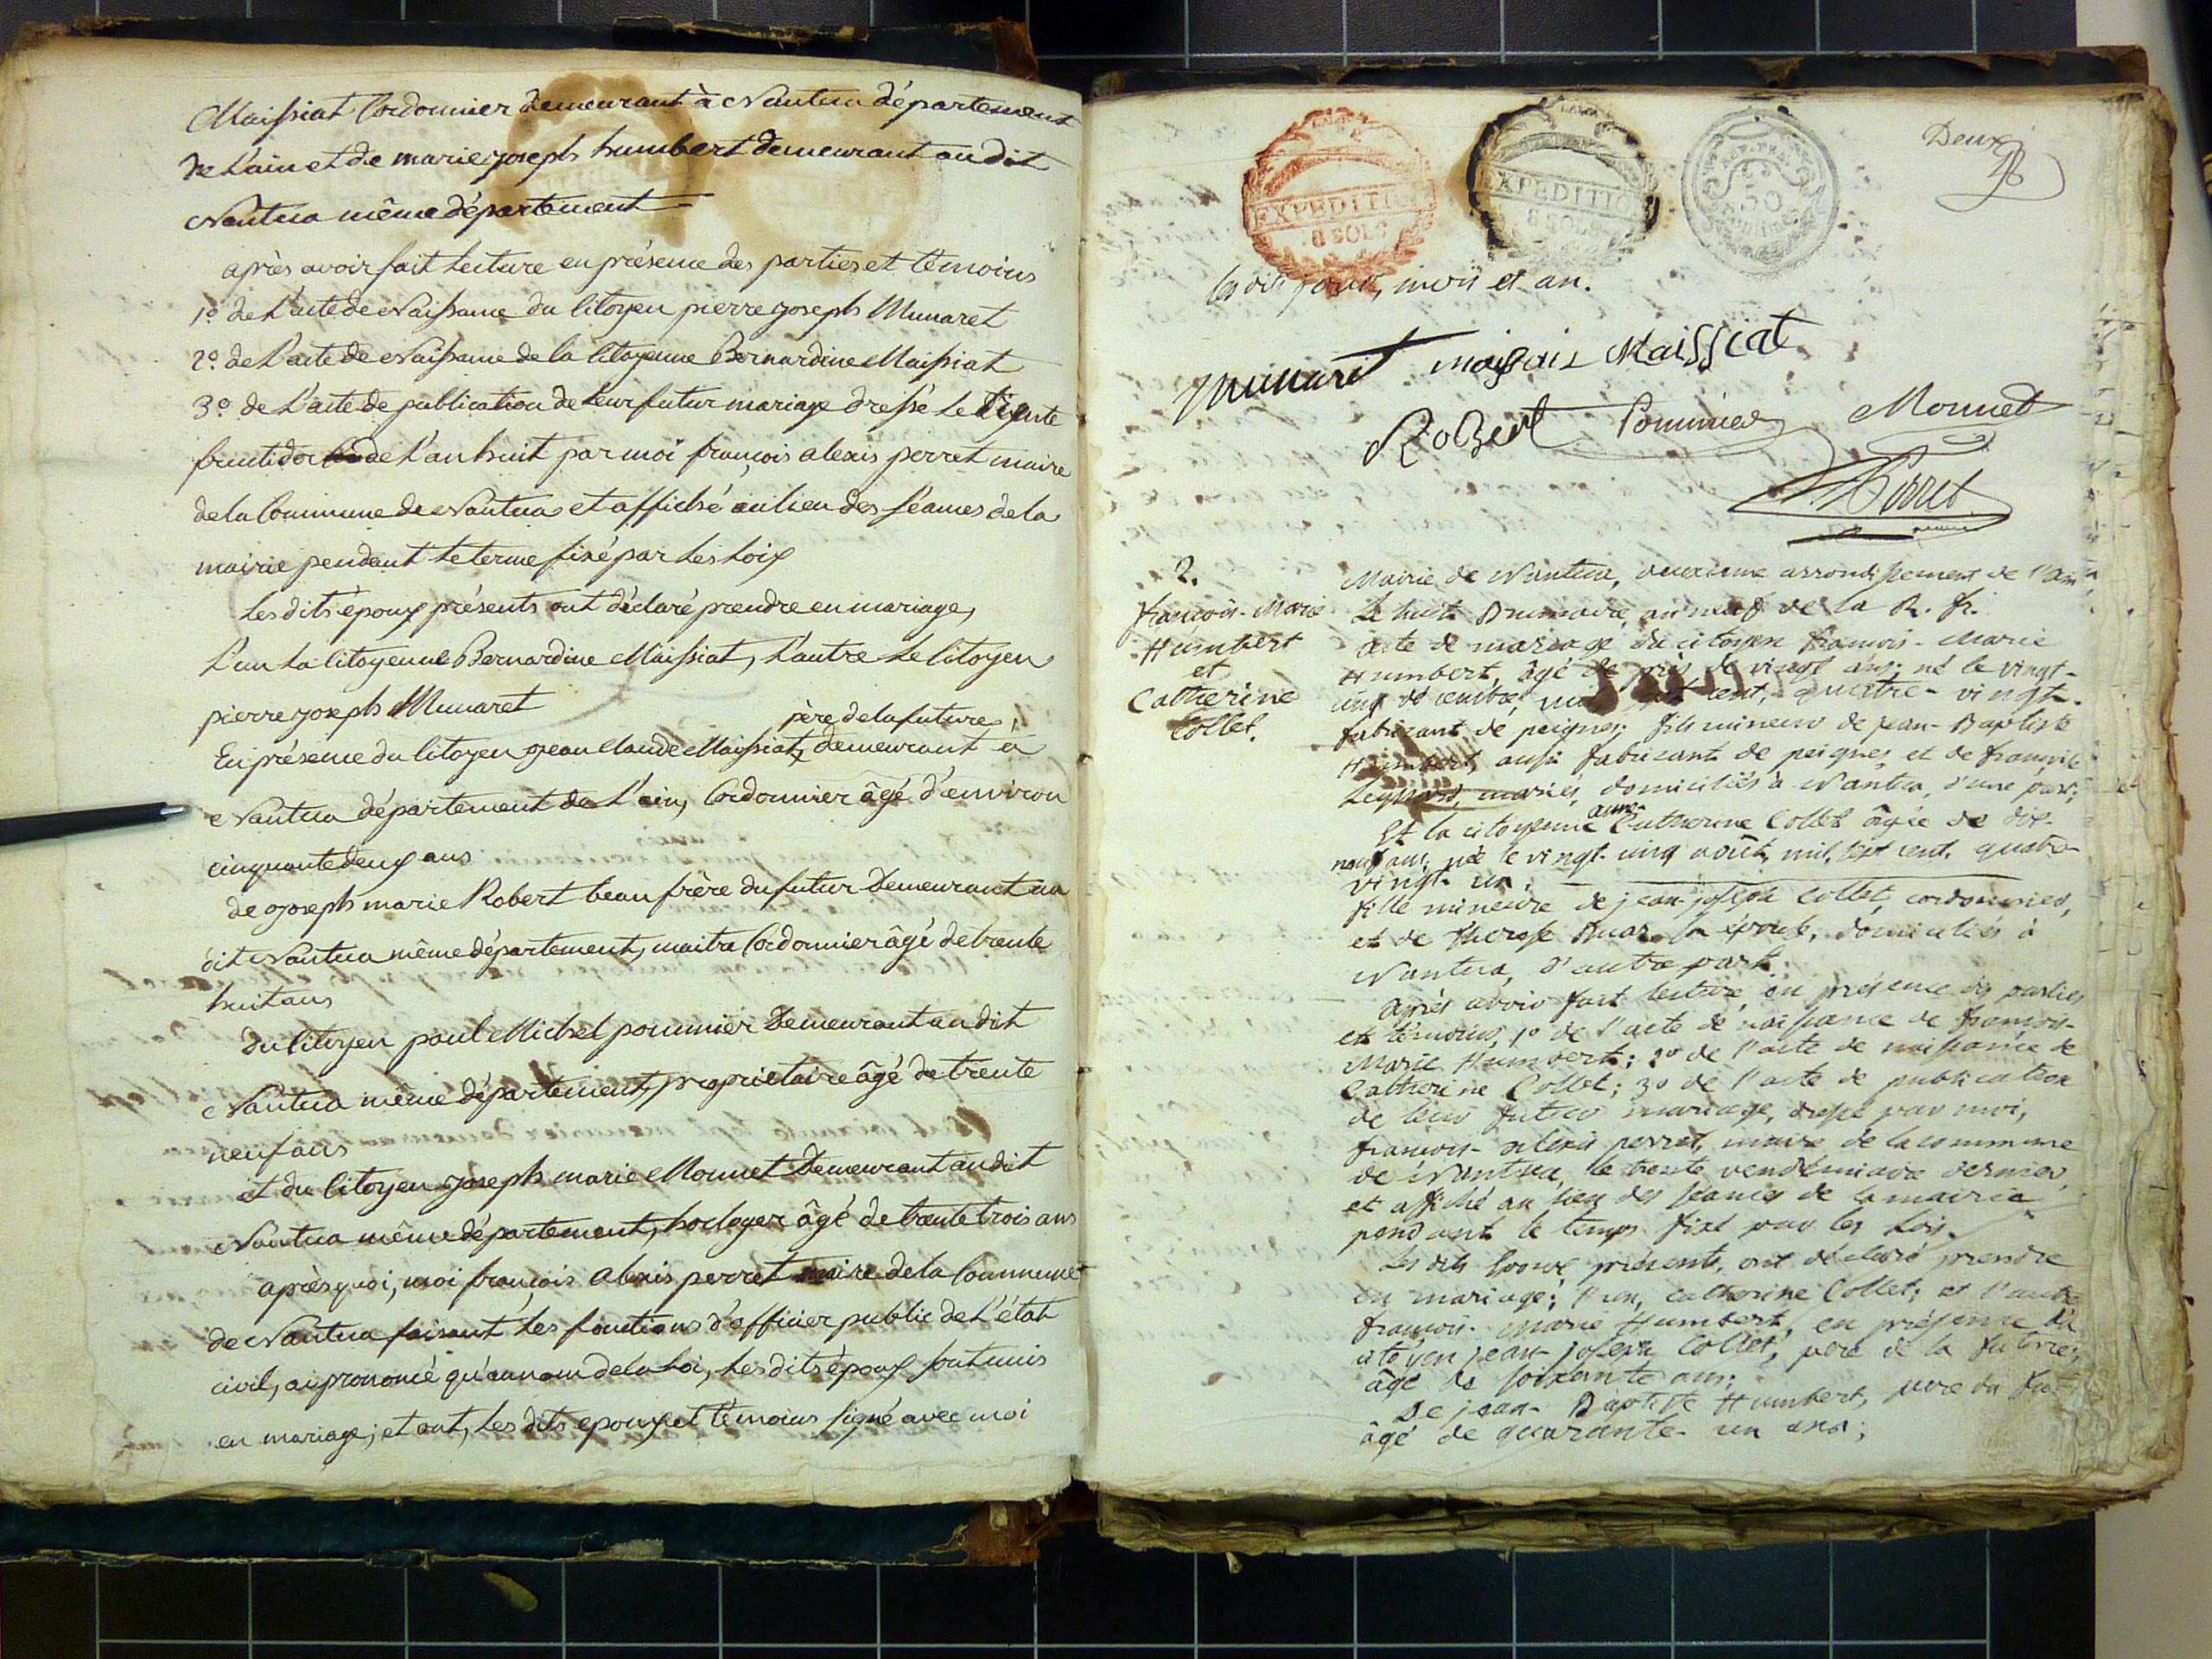 Maissiat Cordonnier demeurant à Nantua département
de L'ain et de marie joseph humbert demeurant au dit
Nantua même département
après avoir fait lecture en présence des parties et témoins
1º de L'acte de Naissance du Citoyen pierre joseph Munaret
2º de L'acte de Naissance de la Citoyenne Bernardine Maissiat
3º de L'acte de publication de leur futur mariage dressé Le trente
fructidor de L'an huit par moi françois alexis perret maire
de la Commune de Nantua et affiché au lieu des séances de la
mairie pendant le terme fixé par Les Loix
Les dits époux présents ont déclaré prendre en mariage,
L'un La Citoyenne Bernardine Maissiat, L'autre Le Citoyen
pierre joseph Munaret
père de la future,
En présence du Citoyen jean Claude Maissiat, demeurant à
Nantua département de L'ain, Cordonnier âgé d'environ
cinquante deux ans
de joseph marie Robert beau frère du futur demeurant au
dit Nantua même département, maitre Cordonnier âgé de trente
huit ans
du Citoyen paul Michel pommier demeurant au dit
Nantua même département, propriétaire âgé de trente
neuf ans
et du Citoyen joseph marie Monnet demeurant au dit
Nantua même département, horloger âgé de trente trois ans
après quoi, moi françois alexis perret maire de la Commune
de Nantua faisant les fonctions d'officier public de L'état
civil, ai prononcé qu'au nom de la Loi, Les dits époux sont unis
en mariage; et ont, Les dits epoux et témoins signé avec moi
Deux
EXPEDITION
8 SOLS
EXPEDITION
8 SOLS
50
les dits jour, mois et an.
Munaret Maissiat
Robert Pommier Monnet
Perret
2.
françois-Marie
Humbert
et
Catherine
Collet.
Mairie de Nantua, deuxieme arrondissement de l'Ain
Le huit Brumaire, an neuf de la R. fr.
acte de mariage du citoyen françois-Marie
Humbert, âgé de près de vingt ans; né le vingt-
cinq décembre mil sept cent, quatre-vingt.
fabricant de peignes; fils mineur de jean-Baptiste
Humbert, aussi fabricant de peignes, et de françoise
mariés, domiciliés à Nantua, d'une part;
Et la citoyenne Catherine Collet âgée de dix-
neuf ans, née le vingt-cinq août, mil, sept cent, quatre-
vingt-un.
fille mineure de jean-joseph Collet, cordonnier,
et de Therese son épouse, domiciliés à
Nantua, d'autre part.
après avoir fait lecture, en présence des parties
et témoins, 1º de l'acte de naissance de françois-
Marie Humbert; 2º de l'acte de naissance de
Catherine Collet; 3º de l'acte de publication
de leur futur mariage, dressé par moi,
françois-alexis perret, maire de la commune
de Nantua, le trente vendémiaire dernier,
et affiché au lieu des séances de la mairie
pendant le temps fixé par les Lois.
Les dits époux présents, ont déclaré prendre
en mariage; l'un, catherine Collet; et l'autre
françois-marie Humbert, en présence du
citoyen jean-joseph Collet, père de la future,
âgé de soixante ans;
De jean-Baptiste Humbert, père du
âgé de quarante-un ans;